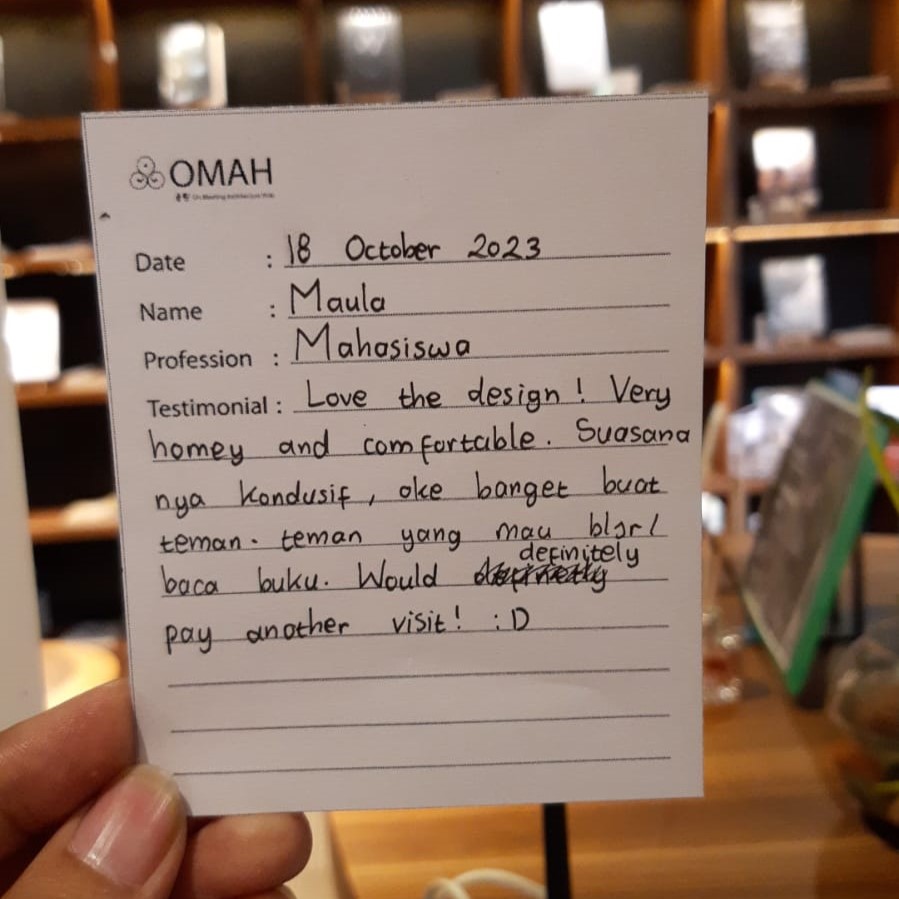 OMAH
Date : 18 October 2023
Name : Maula
Profession : Mahasiswa
Testimonial : Love the design! Very
homey and comfortable. Suasana
nya kondusif, oke banget buat
teman-teman yang mau bljr/
definitely
baca buku. Would
pay another visit! :D